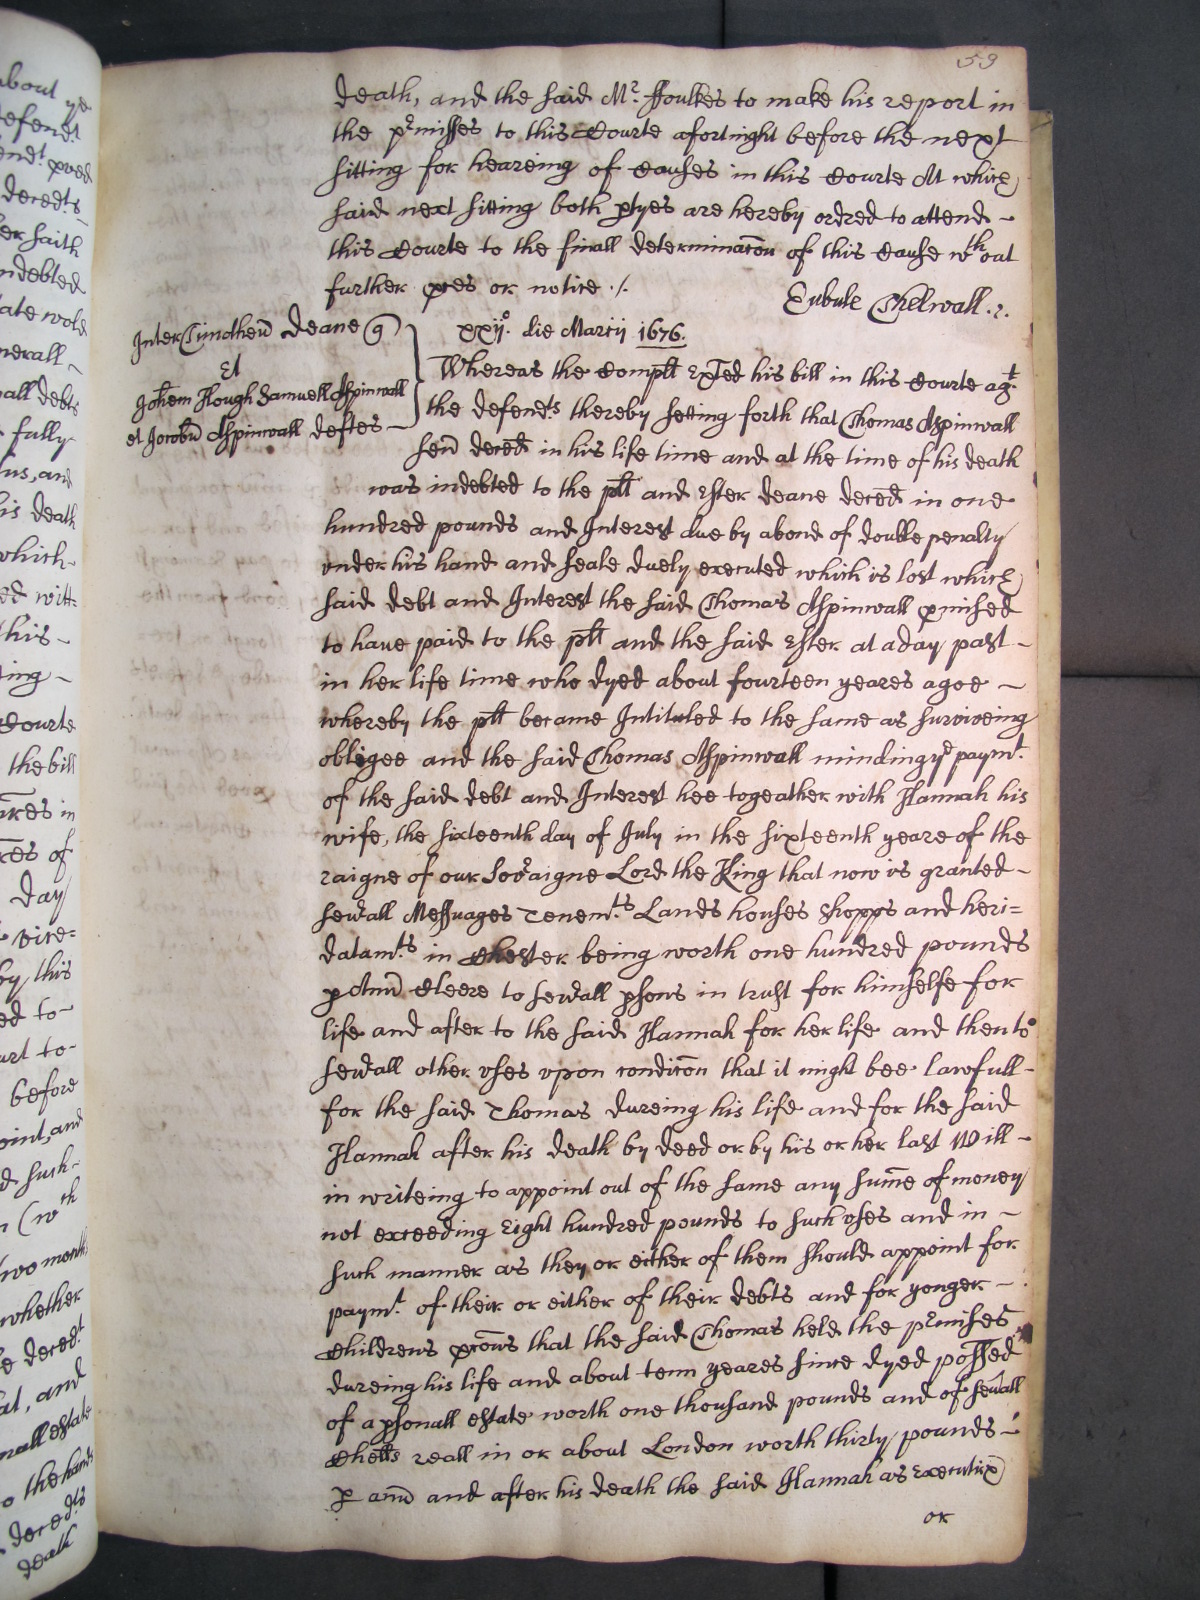 59
death, and the said Mr. ffoulkes to make his report in
the prmisses to this Courte afortnight before the next
sitting for heareing of Causes in this Courte At which
said next sitting both ptyes are hereby ordred to attend -
this Courte to the finall determinacōn of this Cause wthout
further pces or notice ./.
Eubule Thelwall .2.
Inter Timotheū Deane q
Et
Johem Hough Samuell Aspinwall
et Jacobū Aspinwall deftes -
xxijo. die Marcij 1676.
Whereas the Complt exħted his bill in this Courte agt.
the defendts thereby setting forth that Thomas Aspinwall
senr decēd in his life time and at the time of his death
was indebted to the plt and Ester Deane decēd in one
hundred pounds and Interest due by abond of double penalty
vnder his hand and seale duely executed which is lost which
said debt and Interest the said Thomas Aspinwall pmised
to haue paid to the plt and the said Ester at aday past -
in her life time who dyed about fourteen yeares agoe -
whereby the plt became Intituled to the same as surviveing
obligee and the said Thomas Aspinwall minding ye paymt.
of the said debt and Interest hee togeather with Hannah his
wife, the sixteenth day of July in the sixteenth yeare of the
raigne of our Sovraigne Lord the King that now is granted -
sevrall Messuages Tenemts Lands houses shopps and heri=
datamts in Chester being worth one hundred pounds
p Annū Cleere to sevrall psons in trust for himselfe for
life and after to the said Hannah for her life and then to
sevrall other vses vpon condicōn that it might bee lawfull -
for the said Thomas dureing his life and for the said
Hannah after his death by deed or by his or her last Will -
in writeing to appoint out of the same any sum̄e of money
not exceeding eight hundred pounds to such vses and in -
such manner as they or either of them should appoint for
paymt. of their or either of their debts and for yonger -
Childrens pcōns that the said Thomas held the prmises
dureing his life and about tenn yeares since dyed possed
of a psonall estate worth one thousand pounds and of sevrall
Chells reall in or about London worth thirty pounds -
p annū and after his death the said Hannah as executrix
or